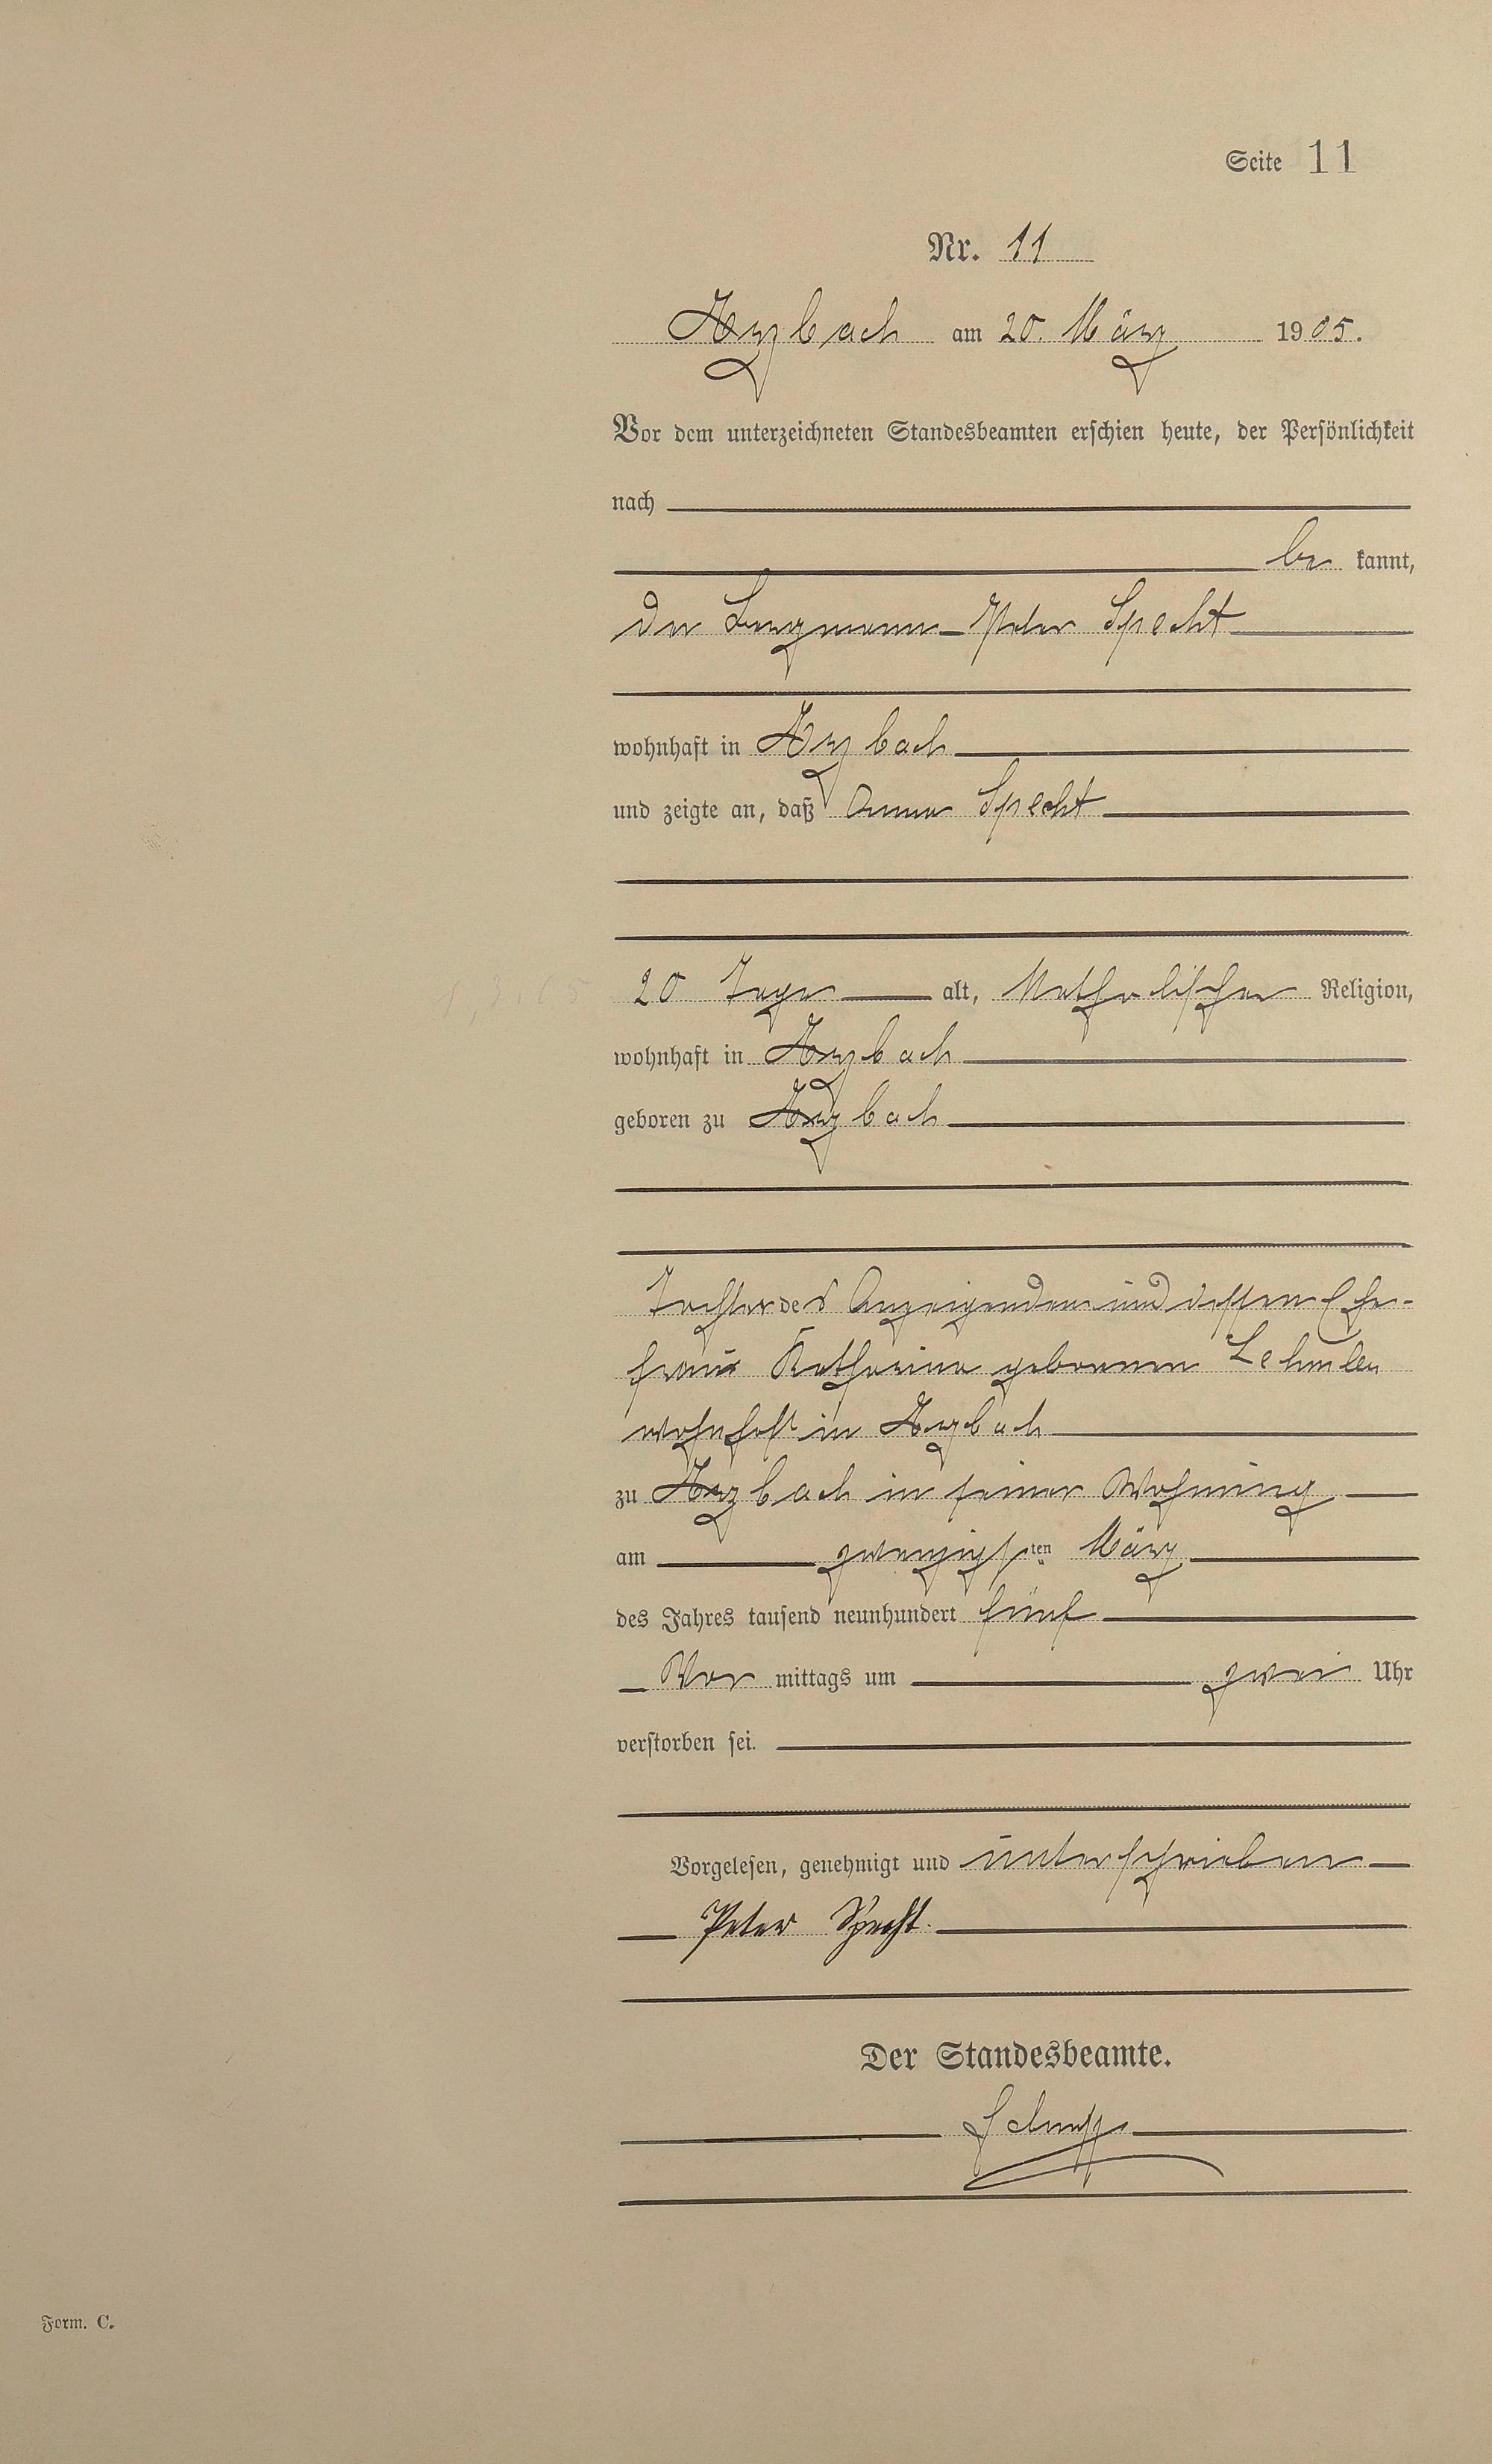 Seite 11
Nr. 11
Arzbach am 20. März 1905.
Vor dem unterzeichneten Standesbeamten erschien heute, der Persönlichkeit
nach
be kannt,
der Bergmann Peter Specht
wohnhaft in Arzbach
und zeigte an, daß Anna Specht
20 Tage alt, katholischer Religion,
wohnhaft in Arzbach
geboren zu Arzbach
Tochter des Anzeigenden und dessen Ehe-
frau Katharina geborenen
wohnhaft in Arzbach
zu Arzbach in seiner Wohnung
am zwanzigsten März
des Jahres tausend neunhundert fünf
Vor mittags um zwei Uhr
verstorben sei.
Vorgelesen, genehmigt und unterschrieben
Peter Specht.
Der Standesbeamte.
Form. C.